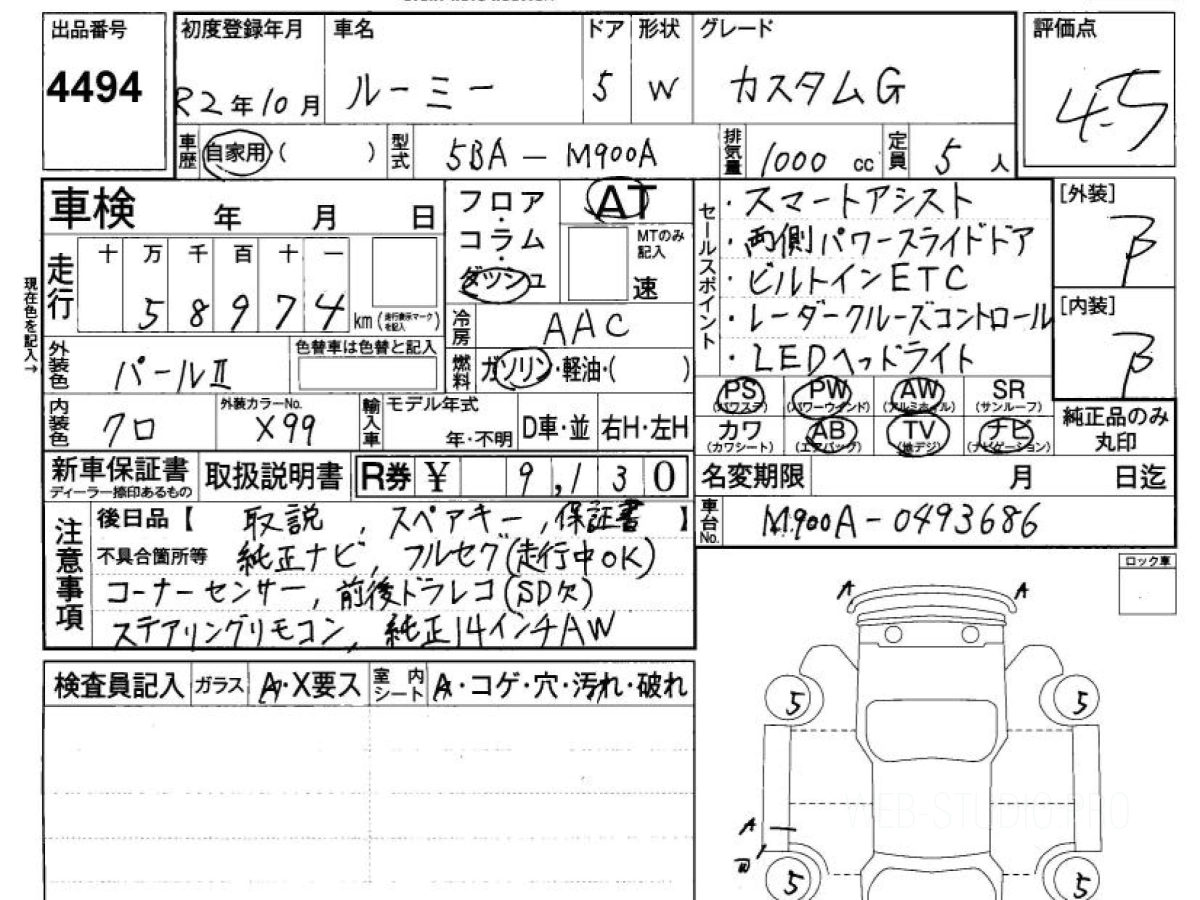 出品番号
4494
初度登録年月 R2年10月
車名 ルーミー
ドア 5
形状 W
グレード カスタムG
評価点 4.5
車歴 自家用( )
型式 5BA-M900A
排気量 1000 cc
定員 5人
車検 年 月 日
フロア・コラム・ダッシュ
AT
MTのみ記入
速
セールスポイント
・スマートアシスト
・両側パワースライドドア
・ビルトインETC
・レーダークルーズコントロール
・LEDヘッドライト
[外装] B
[内装] B
現在色を記入→
走行 十 万 千 百 十 一
5 8 9 7 4 km(走行表示マークを記入)
冷房 AAC
外装色 パールⅡ
色替車は色替と記入
燃料 ガソリン・軽油・( )
PS (パワステ) PW (パワーウインド) AW (アルミホイル) SR (サンルーフ)
カワ (カワシート) AB (エアバッグ) TV (地デジ) ナビ (ナビゲーション)
純正品のみ丸印
内装色 クロ
外装カラーNo. X99
輸入車 モデル年式 年・不明
D車・並 右H・左H
新車保証書
ディーラー捺印あるもの
取扱説明書
R券 ¥ 9,130
名変期限 月 日迄
車台No. M900A-0493686
注意事項
後日品【 取説 , スペアキー , 保証書 】
不具合箇所等 純正ナビ, フルセグ(走行中OK)
コーナーセンサー, 前後ドラレコ(SD欠)
ステアリングリモコン, 純正14インチAW
ロック車
検査員記入 ガラス A・X要ス 室内シート A・コゲ・穴・汚れ・破れ
A A
5 5
WEB-STUDIO.PRO
A
W
5 5